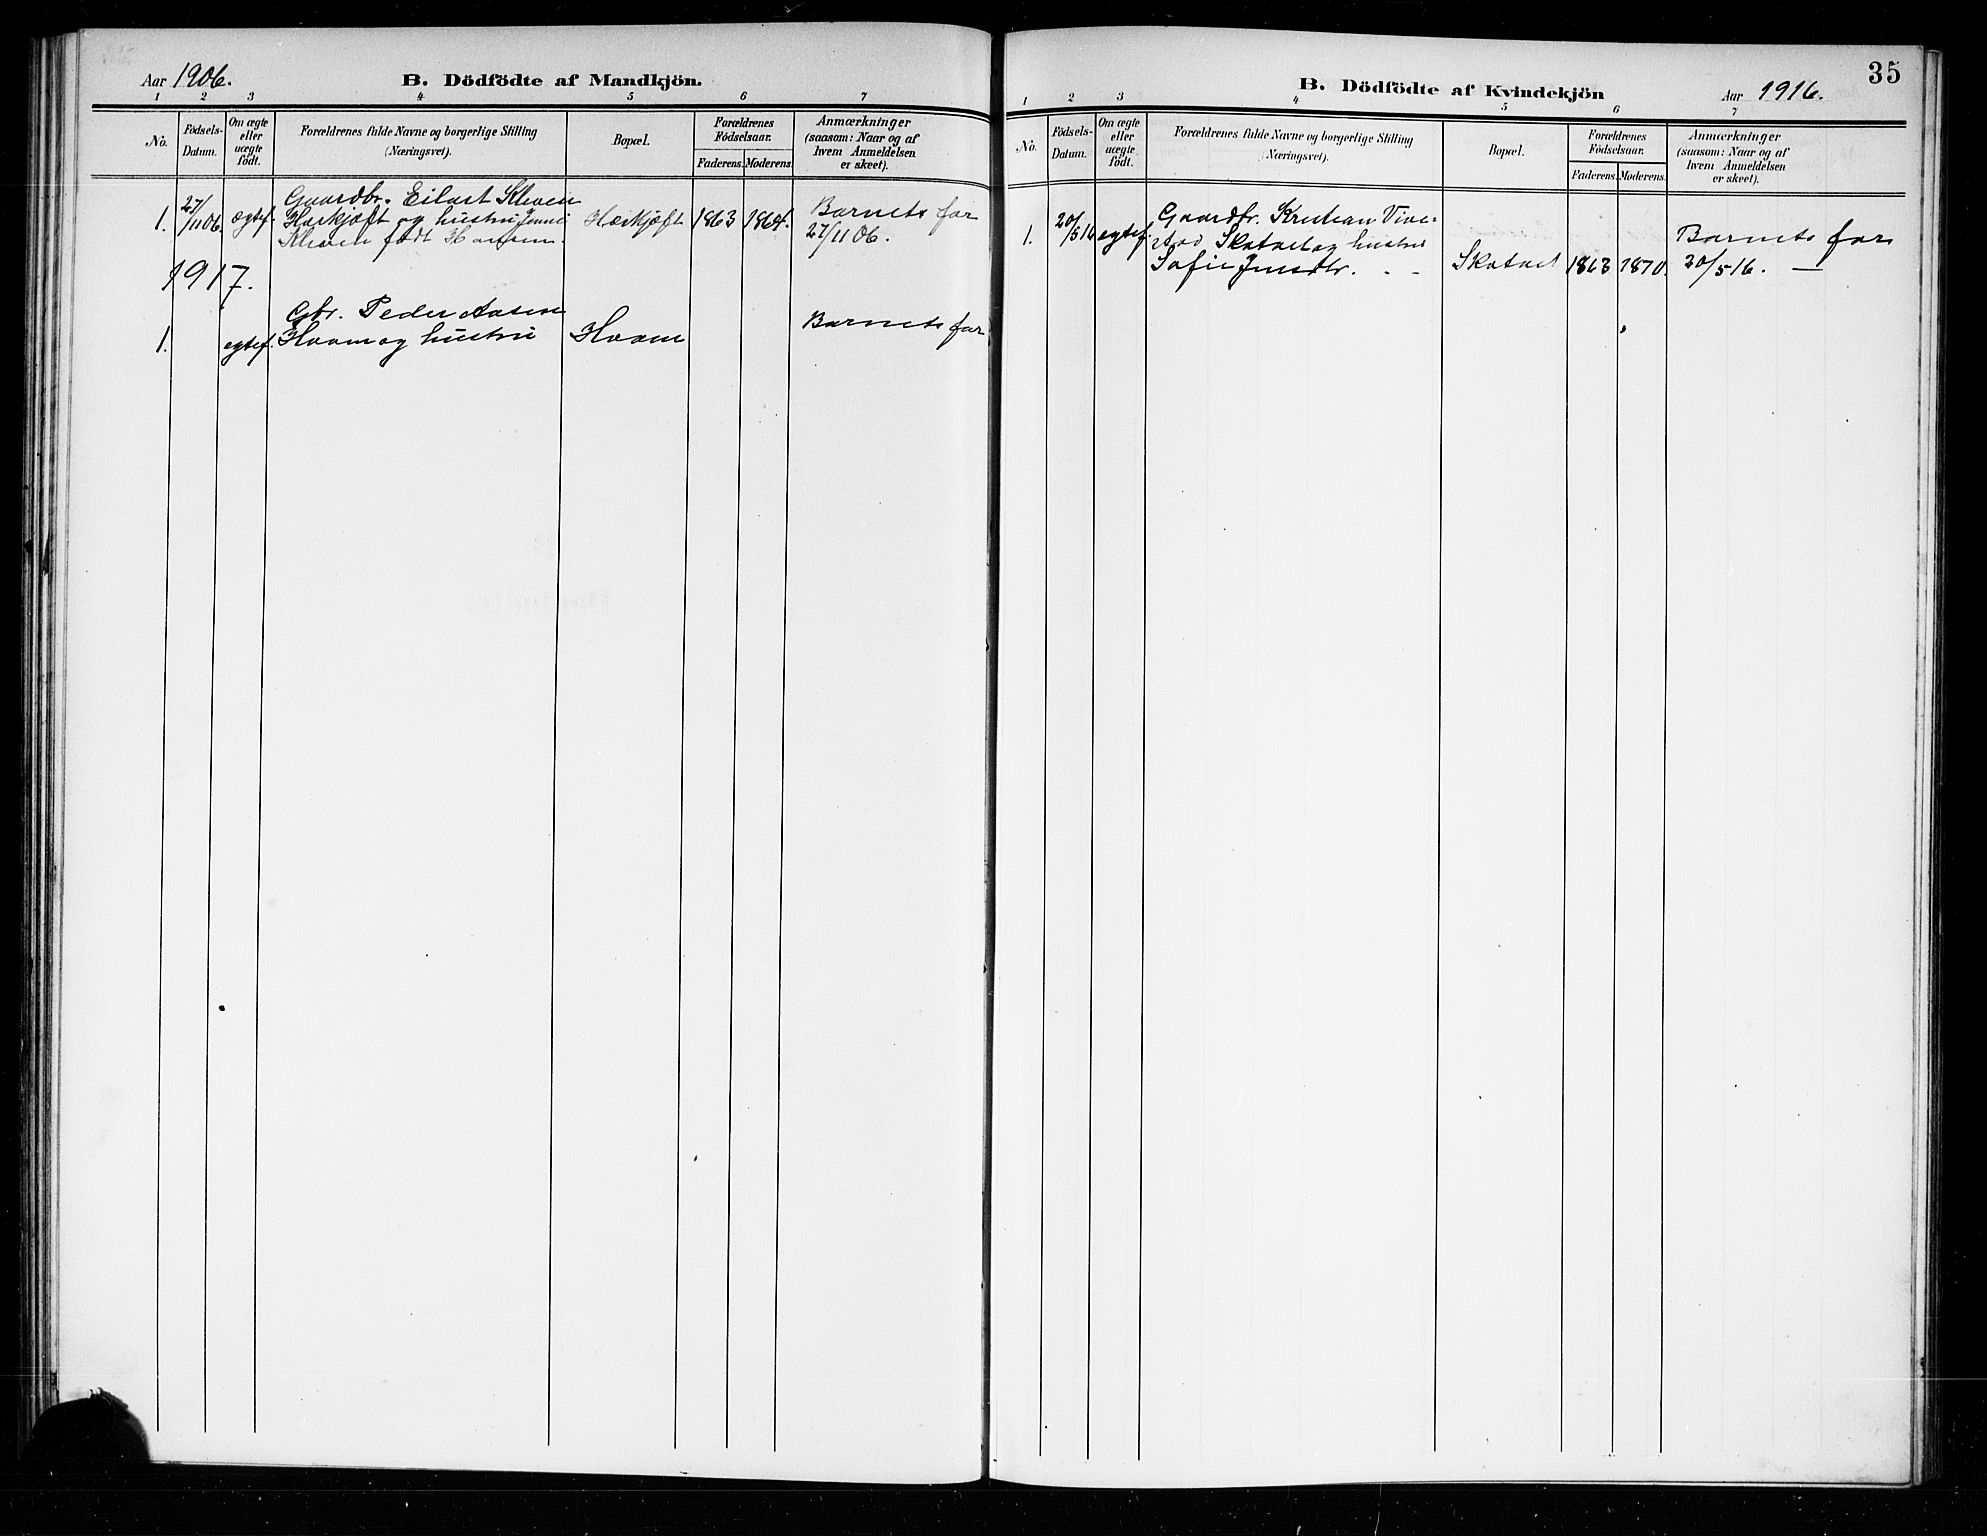 Aar 1906.
B. Dödfödte af Mandkjön.
1 2 3 4 5 6 7
No.
Födsels-
Datum.
Om ægte
eller
uægte
födt.
Forældrenes fulde Navne og borgerlige Stilling
(Næringsvei).
Bopæl.
Forældrenes
Födselsaar.
Faderens. Moderens.
Anmærkninger
(saasom: Naar og af
hvem Anmeldelsen
er skeet).
1.
27/
/11 06.
ægtef.
Gaardbr. Eilert Kleven
Haskjöft og hustru
Kleven født Hansen.
Haskjöft
1863
1864.
Barnets far
27/11 06.
1917.
1.
egtef.
Gbr. Peder Aasen
Hoam og hustru
Hoam
Barnets far
35
B. Dödfödte af Kvindekjön
Aar 1916.
1 2 3 4 5 6 7
No.
Födsels-
Datum.
Om ægte
eller
uægte
födt.
Forældrenes fulde Navne og borgerlige Stilling
(Næringsvei).
Bopæl.
Forældrenes
Födselsaar.
Faderens. Moderens.
Anmærkninger
(saasom: Naar og af
hvem Anmeldelsen
er skeet).
1.
20/
/5 16
egtef.
Gaardbr. Kristian Vive-
stad Skatvet og hustru
Sofie Jensdtr. - -
Skatvet
1863
1870.
Barnets far
20/5 16. —